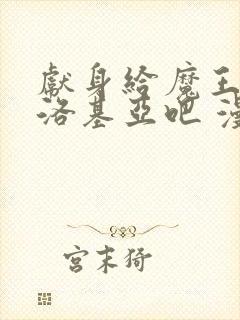 獻身給魔王
洛基亞吧 漫
宮末猗